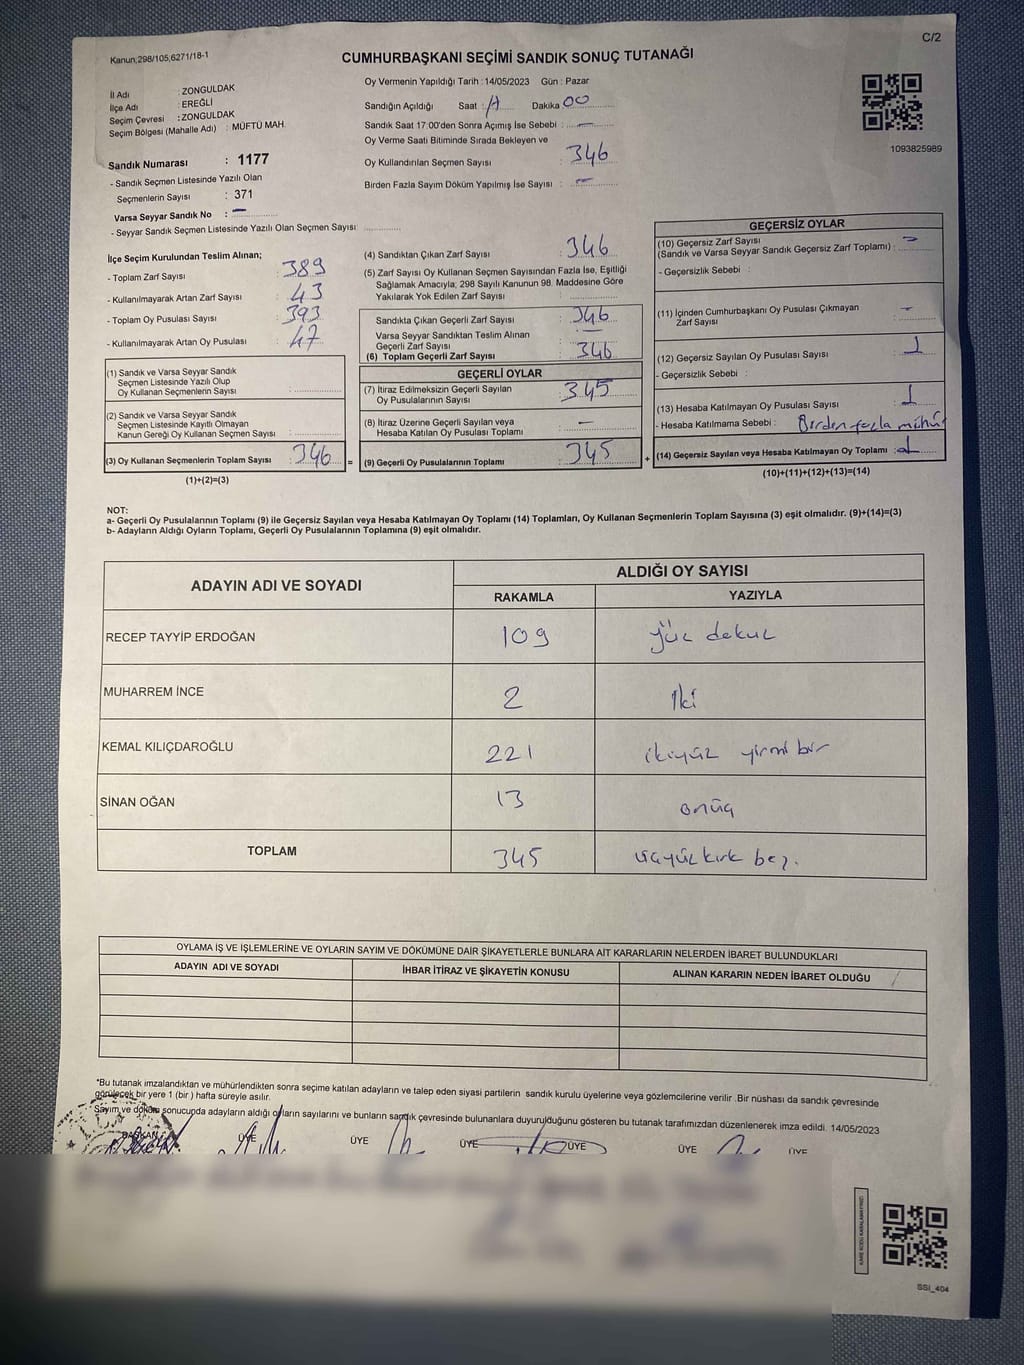 C/2
Kanun;298/105,6271/18-1
CUMHURBAŞKANI SEÇİMİ SANDIK SONUÇ TUTANAĞI
İl Adı : ZONGULDAK
İlçe Adı : EREĞLİ
Seçim Çevresi : ZONGULDAK
Seçim Bölgesi (Mahalle Adı) : MÜFTÜ MAH.
Sandık Numarası : 1177
- Sandık Seçmen Listesinde Yazılı Olan
Seçmenlerin Sayısı : 371
Varsa Seyyar Sandık No : –
- Seyyar Sandık Seçmen Listesinde Yazılı Olan Seçmen Sayısı:
Oy Vermenin Yapıldığı Tarih :14/05/2023 Gün : Pazar
Sandığın Açıldığı Saat : Dakika 00
Sandık Saat 17:00'den Sonra Açımış İse Sebebi : –
Oy Verme Saati Bitiminde Sırada Bekleyen ve
Oy Kullandırılan Seçmen Sayısı : 346
Birden Fazla Sayım Döküm Yapılmış İse Sayısı : –
1093825989
İlçe Seçim Kurulundan Teslim Alınan;
- Toplam Zarf Sayısı : 389
- Kullanılmayarak Artan Zarf Sayısı : 43
- Toplam Oy Pusulası Sayısı : 393
- Kullanılmayarak Artan Oy Pusulası : 47
(1) Sandık ve Varsa Seyyar Sandık
Seçmen Listesinde Yazılı Olup
Oy Kullanan Seçmenlerin Sayısı :
(2) Sandık ve Varsa Seyyar Sandık
Seçmen Listesinde Kayıtlı Olmayan
Kanun Gereği Oy Kullanan Seçmen Sayısı :
(3) Oy Kullanan Seçmenlerin Toplam Sayısı : 346 =
(1)+(2)=(3)
(4) Sandıktan Çıkan Zarf Sayısı : 346
(5) Zarf Sayısı Oy Kullanan Seçmen Sayısından Fazla İse, Eşitliği
Sağlamak Amacıyla; 298 Sayılı Kanunun 98. Maddesine Göre
Yakılarak Yok Edilen Zarf Sayısı :
Sandıkta Çıkan Geçerli Zarf Sayısı : 346
Varsa Seyyar Sandıktan Teslim Alınan
Geçerli Zarf Sayısı : –
(6) Toplam Geçerli Zarf Sayısı : 346
GEÇERLİ OYLAR
(7) İtiraz Edilmeksizin Geçerli Sayılan
Oy Pusulalarının Sayısı : 345
(8) İtiraz Üzerine Geçerli Sayılan veya
Hesaba Katılan Oy Pusulası Toplamı : –
(9) Geçerli Oy Pusulalarının Toplamı : 345 +
GEÇERSİZ OYLAR
(10) Geçersiz Zarf Sayısı
(Sandık ve Varsa Seyyar Sandık Geçersiz Zarf Toplamı) : –
- Geçersizlik Sebebi :
(11) İçinden Cumhurbaşkanı Oy Pusulası Çıkmayan
Zarf Sayısı : –
(12) Geçersiz Sayılan Oy Pusulası Sayısı : 1
- Geçersizlik Sebebi :
(13) Hesaba Katılmayan Oy Pusulası Sayısı : 1
- Hesaba Katılmama Sebebi : Birden fazla mühür
(14) Geçersiz Sayılan veya Hesaba Katılmayan Oy Toplamı : 1
(10)+(11)+(12)+(13)=(14)
NOT:
a- Geçerli Oy Pusulalarının Toplamı (9) ile Geçersiz Sayılan veya Hesaba Katılmayan Oy Toplamı (14) Toplamları, Oy Kullanan Seçmenlerin Toplam Sayısına (3) eşit olmalıdır. (9)+(14)=(3)
b- Adayların Aldığı Oyların Toplamı, Geçerli Oy Pusulalarının Toplamına (9) eşit olmalıdır.
ADAYIN ADI VE SOYADI ALDIĞI OY SAYISI
RAKAMLA YAZIYLA
RECEP TAYYİP ERDOĞAN 109 yüz dokuz
MUHARREM İNCE 2 iki
KEMAL KILIÇDAROĞLU 221 ikiyüz yirmi bir
SİNAN OĞAN 13 onüç
TOPLAM 345 üçyüz kırk beş.
OYLAMA İŞ VE İŞLEMLERİNE VE OYLARIN SAYIM VE DÖKÜMÜNE DAİR ŞİKAYETLERLE BUNLARA AİT KARARLARIN NELERDEN İBARET BULUNDUKLARI
ADAYIN ADI VE SOYADI İHBAR İTİRAZ VE ŞİKAYETİN KONUSU ALINAN KARARIN NEDEN İBARET OLDUĞU
*Bu tutanak imzalandıktan ve mühürlendikten sonra seçime katılan adayların ve talep eden siyasi partilerin sandık kurulu üyelerine veya gözlemcilerine verilir .Bir nüshası da sandık çevresinde
görülecek bir yere 1 (bir ) hafta süreyle asılır.
Sayım ve döküm sonucunda adayların aldığı oyların sayılarını ve bunların sandık çevresinde bulunanlara duyurulduğunu gösteren bu tutanak tarafımızdan düzenlenerek imza edildi. 14/05/2023
BAŞKAN ÜYE ÜYE ÜYE ÜYE ÜYE ÜYE
SSI_404